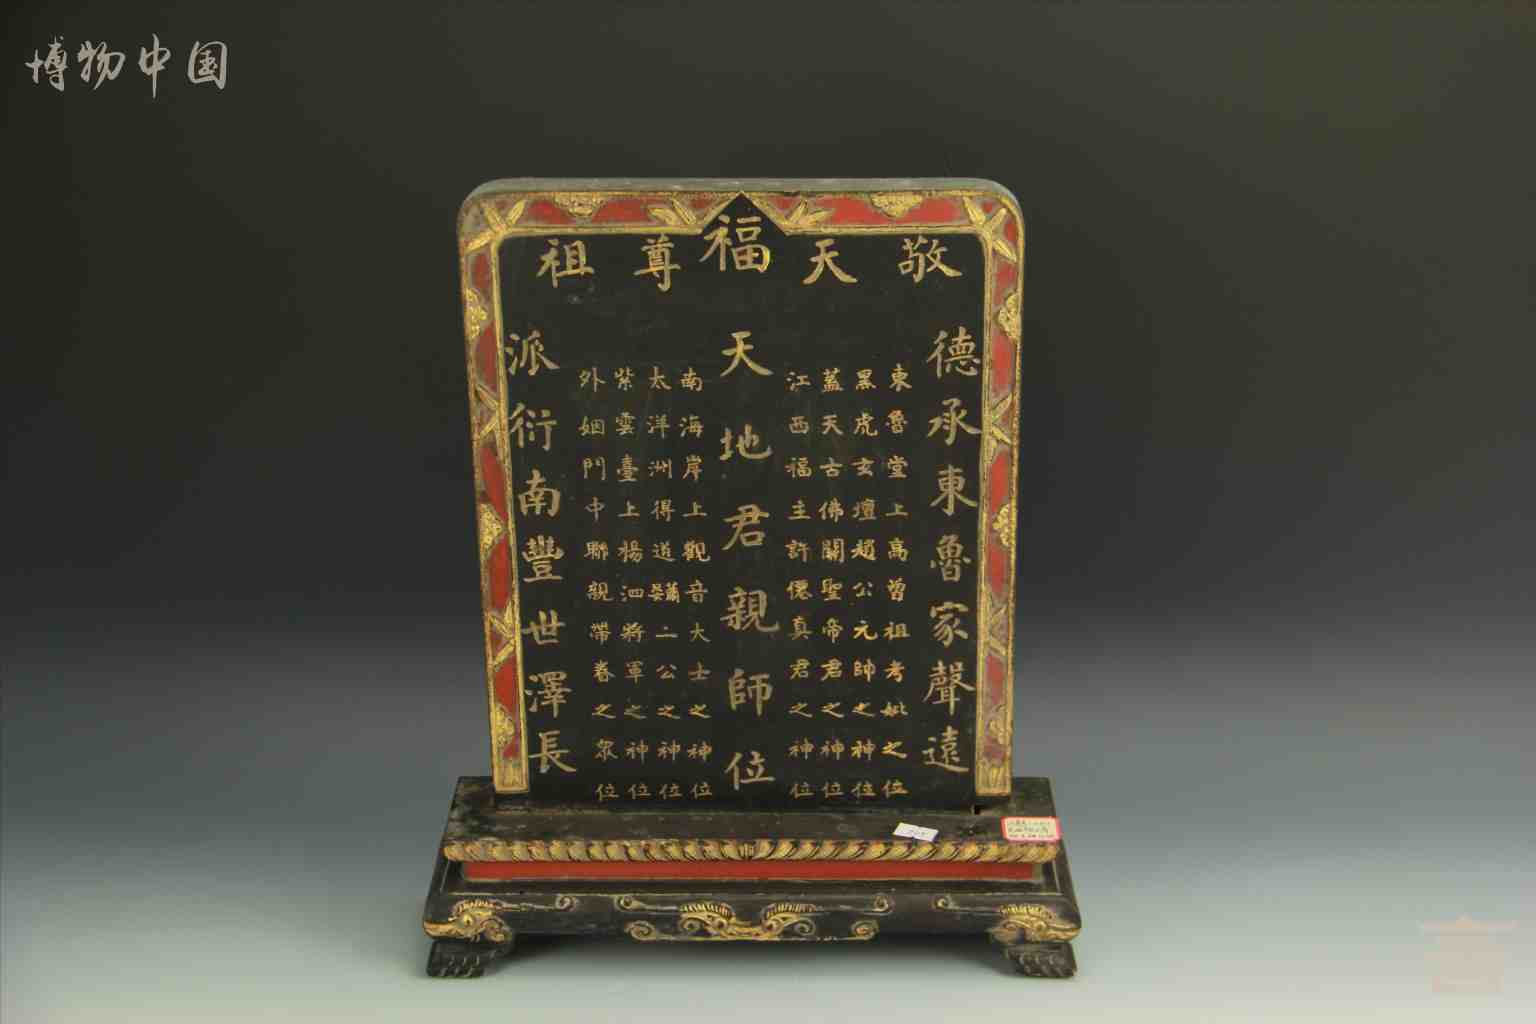 博物中国
敬天福尊祖
德承東魯家聲遠
東魯堂上高曾祖考妣之位
黑虎玄壇趙公元帥之神位
蓋天古佛關聖帝君之神位
江西福主許僊真君之神位
天地君親師位
南海岸上觀音大士之神位
太洋洲得道晏蕭二公之神位
紫雲臺上楊泗將軍之神位
外姻門中聯親帶眷之眾位
派衍南豐世澤長